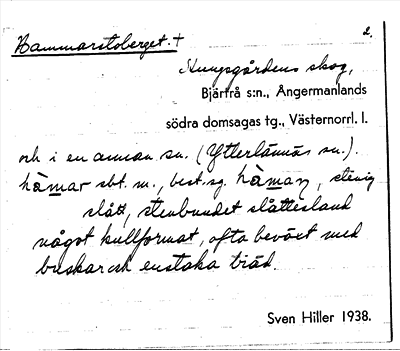 Hammarstoberget.+ 2.
Kungsgårdens skog,
Bjärtrå s:n., Ångermanlands
södra domsagas tg., Västernorrl. l.
och i en annan sn. (Ytterlännäs sn.).
hàmar sbt. m., best. sg. hàman, stenig
slått, stenbundet slåttesland
något kullformat, ofta beväxt med
buskar och enstaka träd.
Sven Hiller 1938.